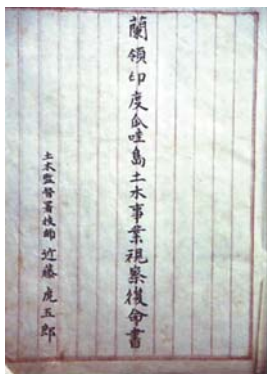 蘭領印度瓜哇島土木事業視察復命書
土木監督署技師 近藤虎五郎